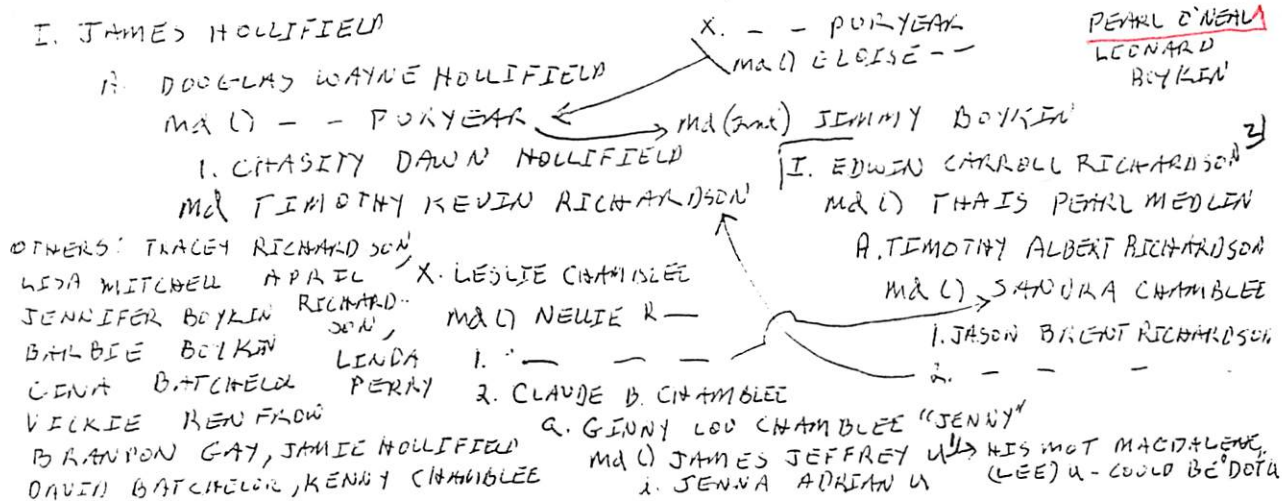 I. JAMES HOLLIFIELD
A. DOUGLAS WAYNE HOLLIFIELD
md () - - PURYEAR
1. CHASITY DAWN HOLLIFIELD
md TIMOTHY KEVIN RICHARDSON
X. - - PURYEAR
md () ELOISE - -
md (2nd) JIMMY BOYKIN
PEARL O'NEAL
LEONARD
BOYKIN
I. EDWIN CARROLL RICHARDSON 3)
md () THAIS PEARL MEDLIN
A. TIMOTHY ALBERT RICHARDSON
md () SANDRA CHAMBLEE
1. JASON BRENT RICHARDSON
2. - - -
OTHERS: TRACEY RICHARDSON,
LISA MITCHELL APRIL
JENNIFER BOYKIN RICHARD-
SON,
BARBIE BOYKIN LINDA
GINA BATCHELOR PERRY
VICKIE RENFROW
BRANDON GAY, JAMIE HOLLIFIELD
DAVID BATCHELOR, KENNY CHAMBLEE
X. LESLIE CHAMBLEE
md () NELLIE R —
1. — — —
2. CLAUDE B. CHAMBLEE
a. GINNY LOU CHAMBLEE "JENNY"
md () JAMES JEFFREY U HIS MOT MAGDALENE
i. JENNA ADRIAN U (LEE) U - COULD BE